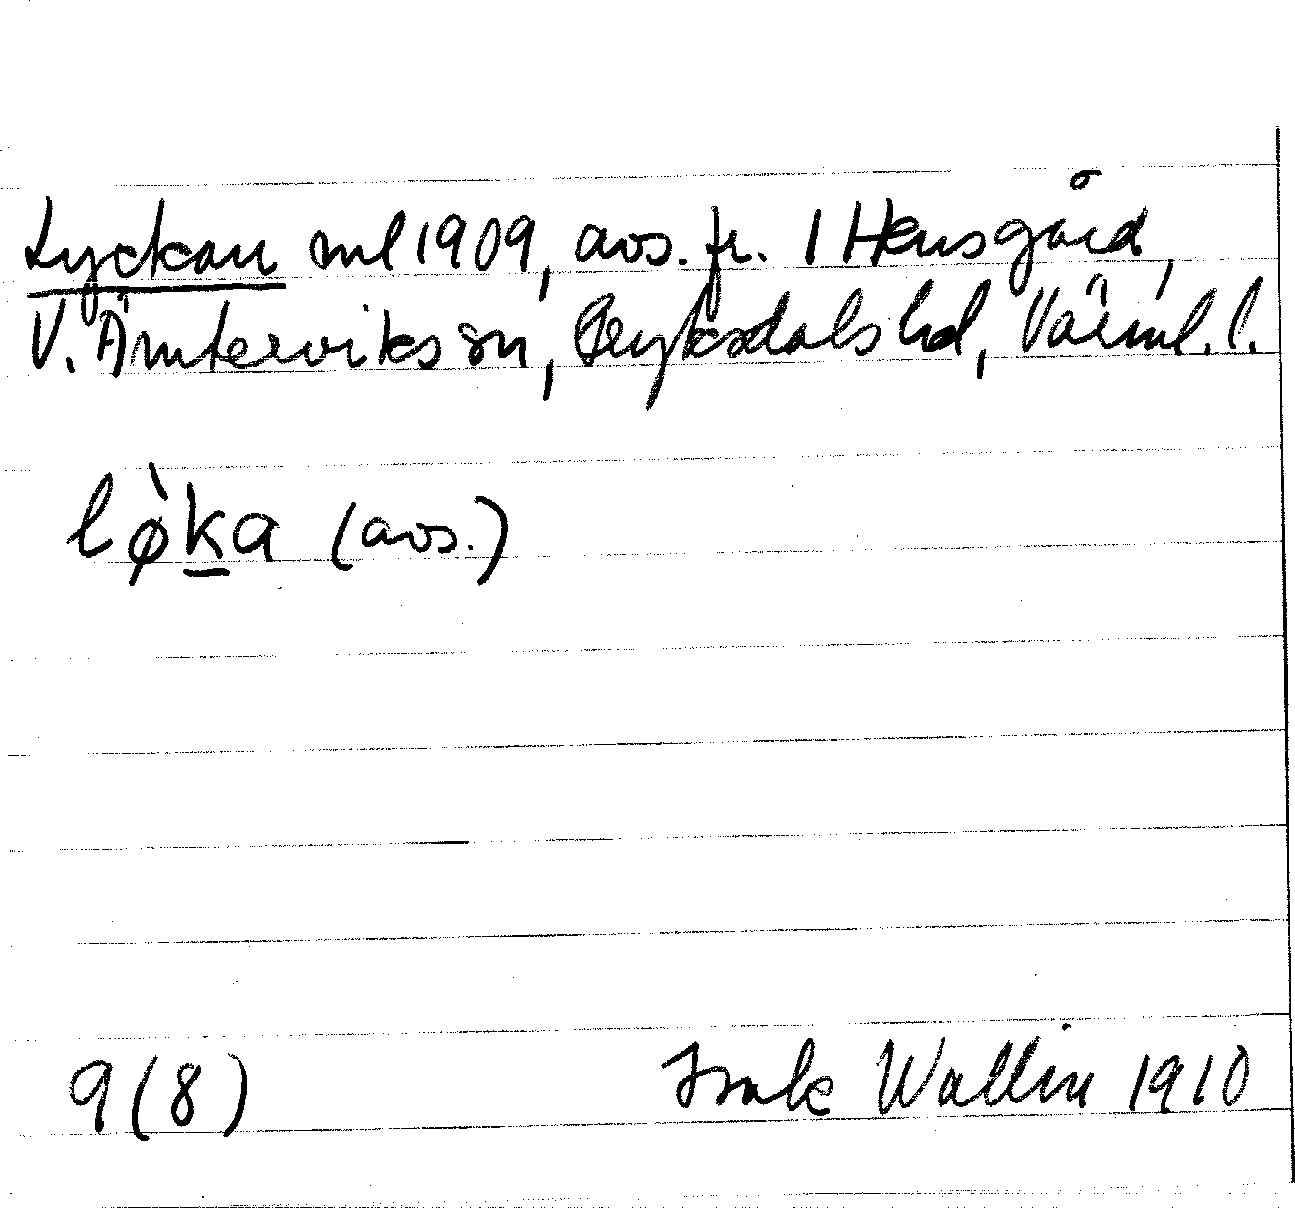 Lyckan ml 1909, avs. fr. 1 Hensgård,
V. Ämterviks sn, Fryksdals hd, Värml. l.
lø̀ka (avs.)
9 (8)
Isak Wallin 1910